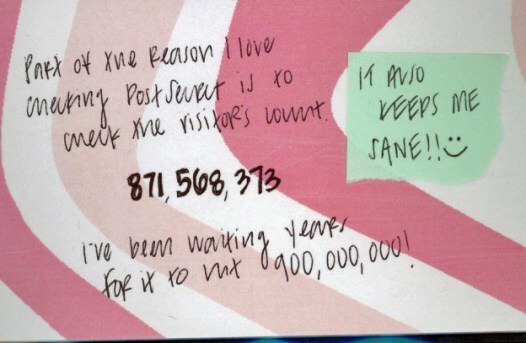 Part of the reason I love
checking PostSecret is to
check the visitor's count.
871,568,373
I've been waiting years
for it to hit 900,000,000!
IT ALSO
KEEPS ME
SANE!!